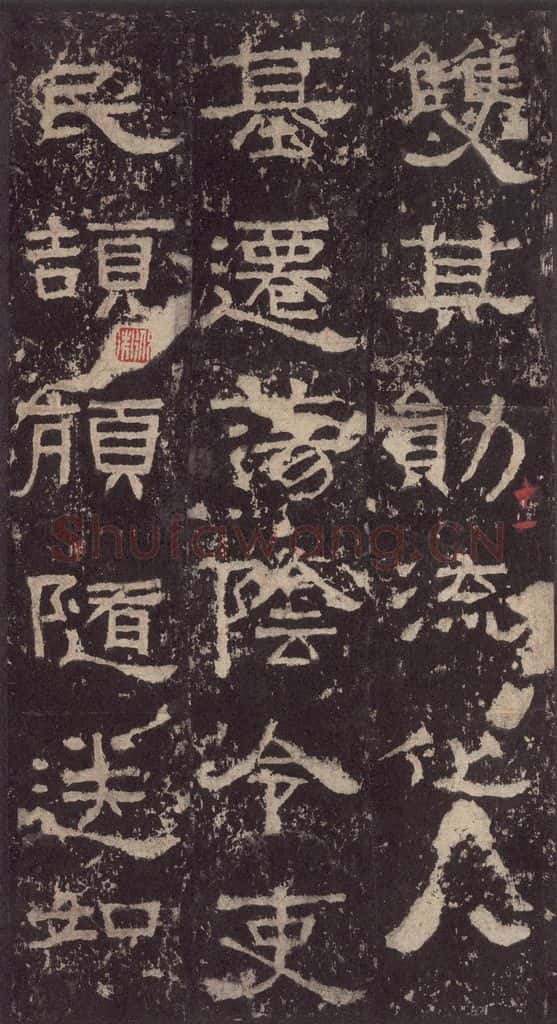 雙其勛流化八
基遷蕩陰令吏
民頡頏隨送如
Shufawang.CN